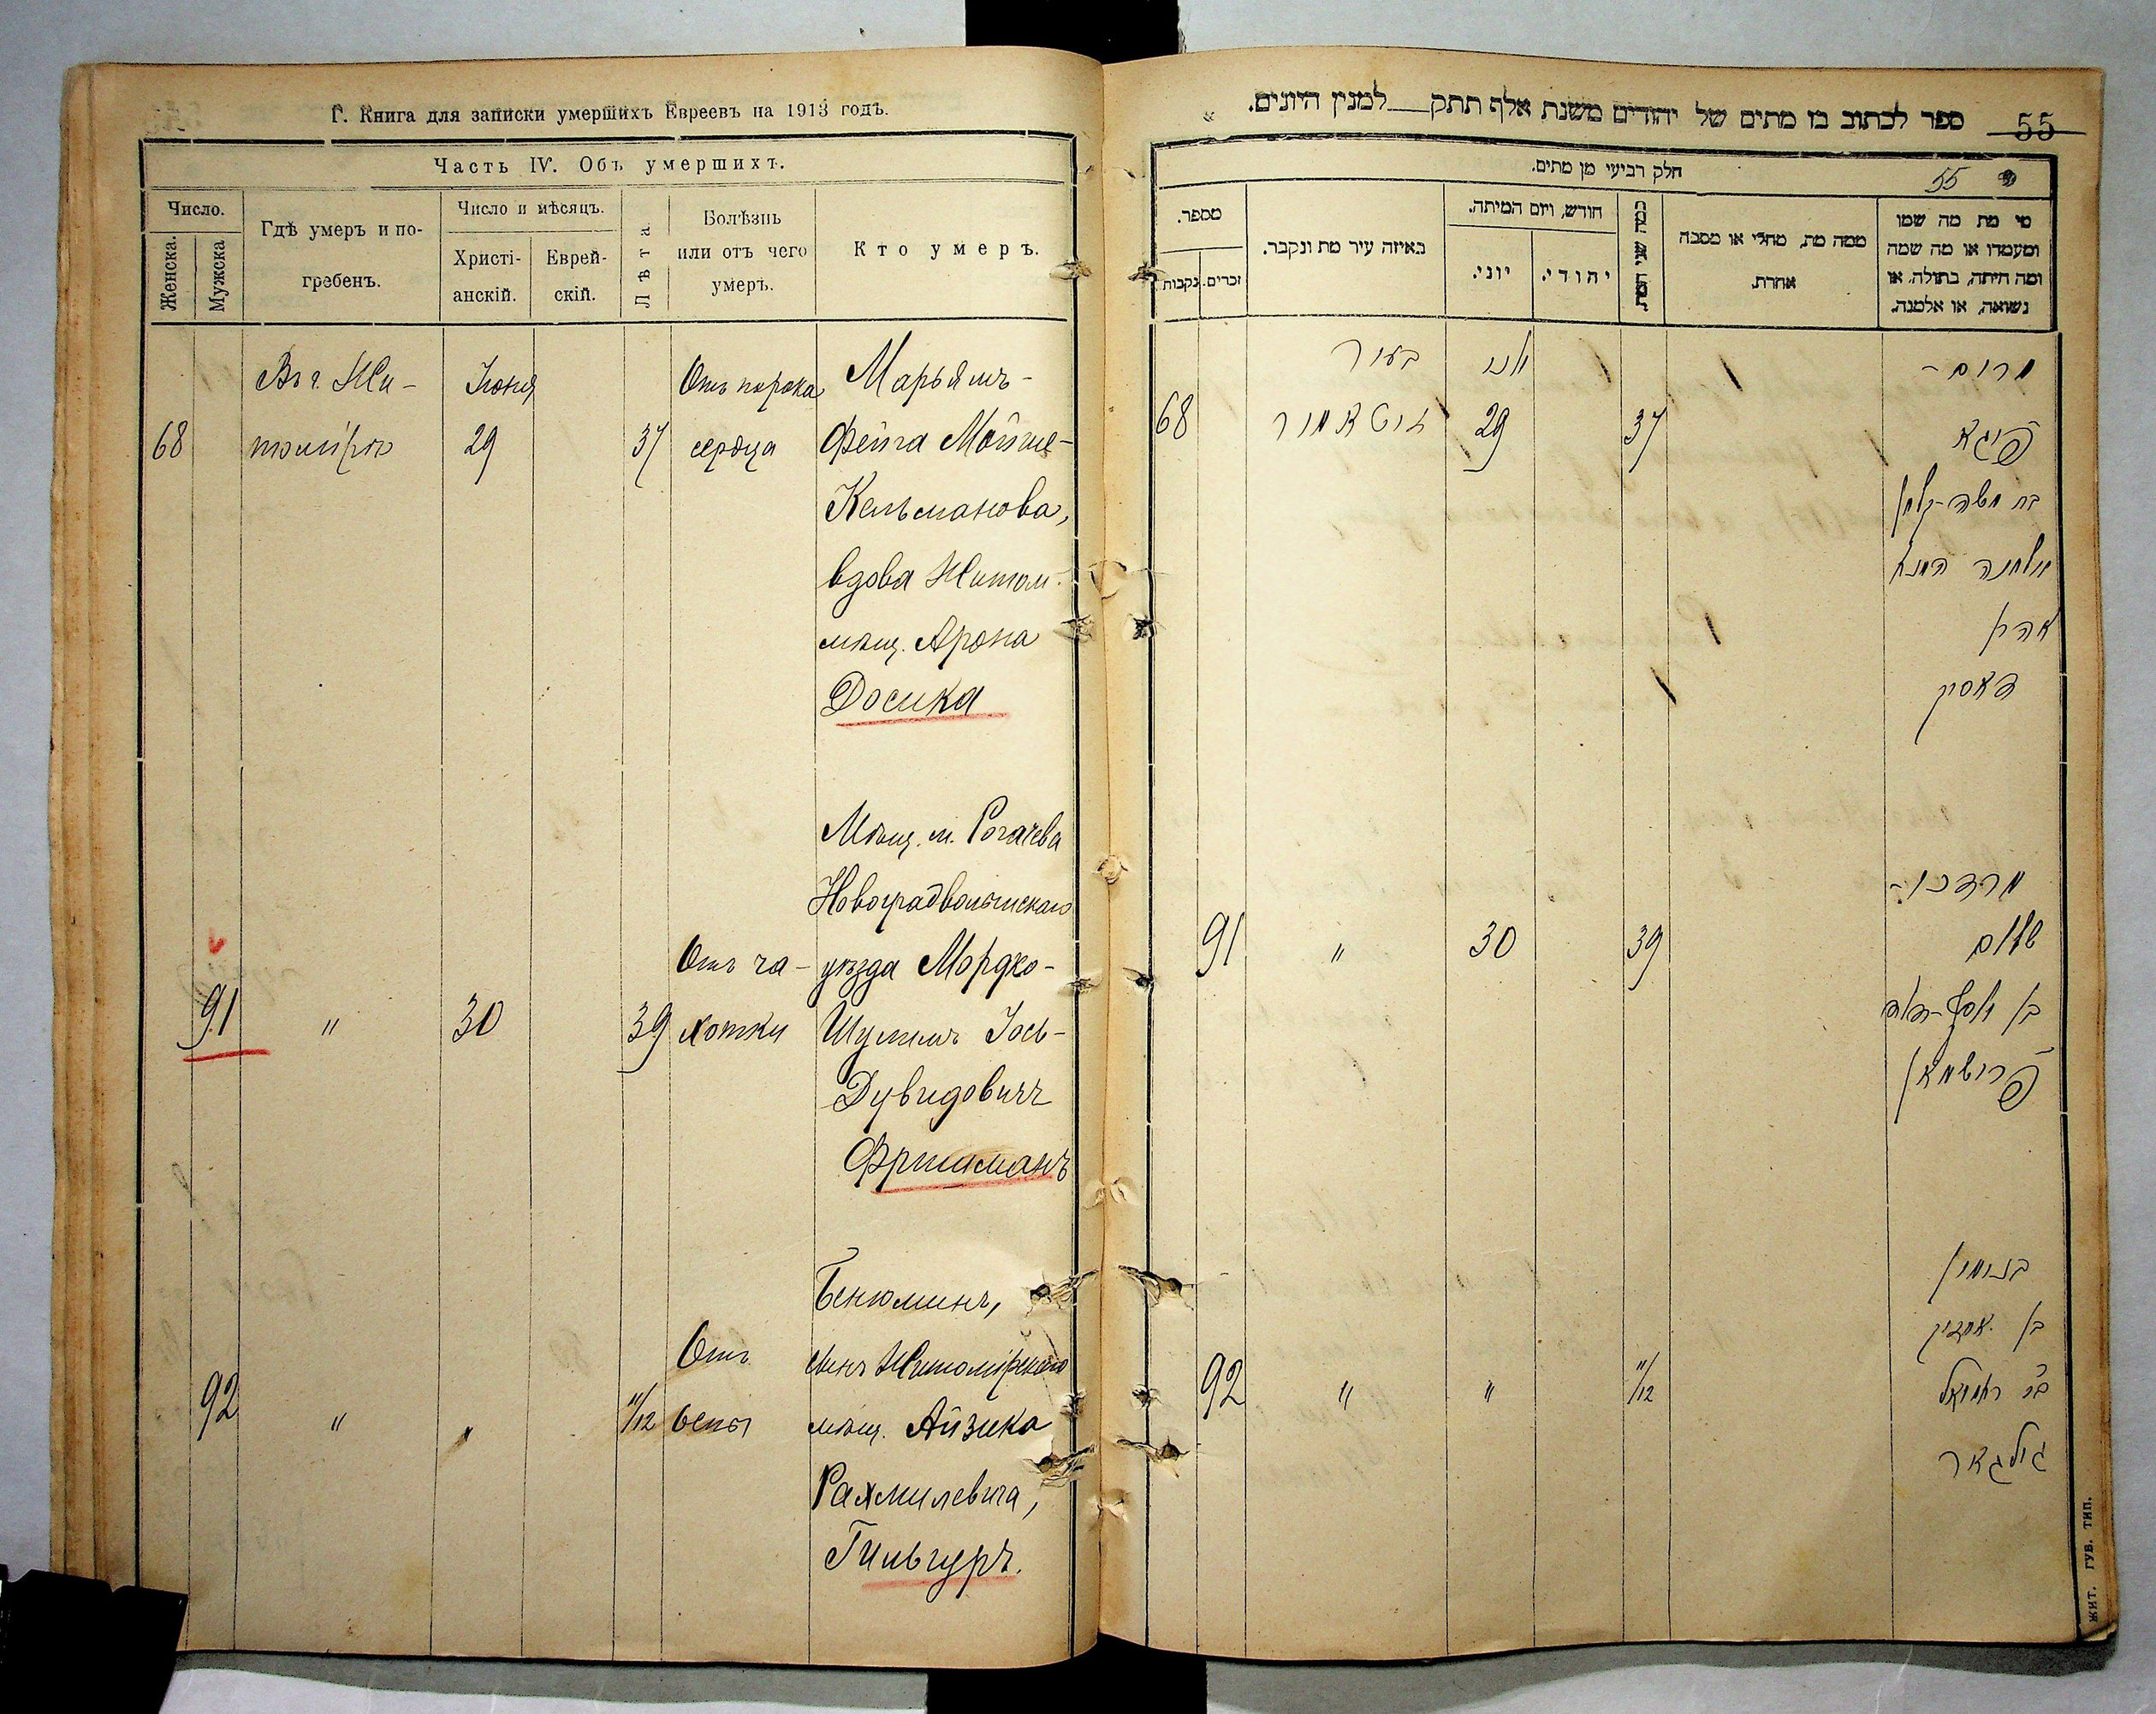 Г. Книга для записки умершихъ Евреевъ на 1913 годъ.
Часть IV. Объ умершихъ.
Число.
Женска.
Мужска
Гдѣ умеръ и по-
гребенъ.
Число и мѣсяцъ.
Христі-
анскій.
Еврей-
скій.
Лѣта.
Болѣзнь
или отъ чего
умеръ.
Кто умеръ.
Въ г. Жи- Іюня Отъ порока Марьямъ-
68 томірѣ 29 37 сердца Фейга Мойше-
Кельманова,
вдова Житом.
мѣщ. Арона
Досика
Мѣщ. м. Рогачева
Новоградволынскаго
Отъ ча- уѣзда Мордко-
91 " 30 39 хотки Шулимъ Іось-
Дувидовичъ
Фришманъ
Бенюминъ,
Отъ сынъ Житомірскаго
92 " " 11/12 оспы мѣщ. Айзика
Рахмилевича,
Гильгуръ.
55
ספר לכתוב בו מתים של יהודים משנת אלף תתק למנין היונים.
55
חלק רביעי מן מתים.
מספר.
נקבות
זכרים.
באיזה עיר מת ונקבר.
חודש, ויום המיתה.
יוני.
יהודי.
כמה שני המת.
ממה מת, מחלי או מסבה
אחרת.
מי מת מה שמו
ומעמדו או מה שמה
ומה היתה, בתולה, או
נשואה, או אלמנה.
בעיר יוני מרים-
68 זיטאמיר 29 37 פייגא
בת משה-קלמן
אלמנה
אהרן
דאסיק
מרדכי-
91 " 30 39 שלום
בן יוסף-דוד
פרישמאן
בנימין
בן אייזיק
92 " " 11/12 ב״ר ירחמיאל
גילגאר
жит. губ. тип.